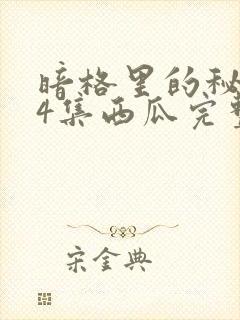 暗格里的秘
4集西瓜完整
宋金典